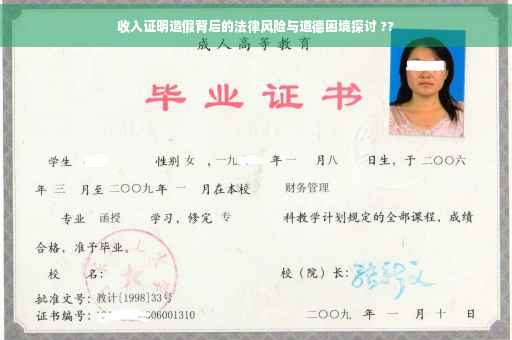 收入证明造假背后的法律风险与道德困境探讨 ??
成人高等教育
毕业证书
学生 性别 女 ，一九 年 一 月八 日生，于 二〇〇六
年 三 月至 二〇〇九 年 一 月在本校 财务管理
专业 函授 学习，修完 专 科教学计划规定的全部课程，成绩
合格，准予毕业。
校 名： 校（院）长：
批准文号：教计[1998]33号
证书编号：1 006001310 二〇〇九 年 一 月 十 日